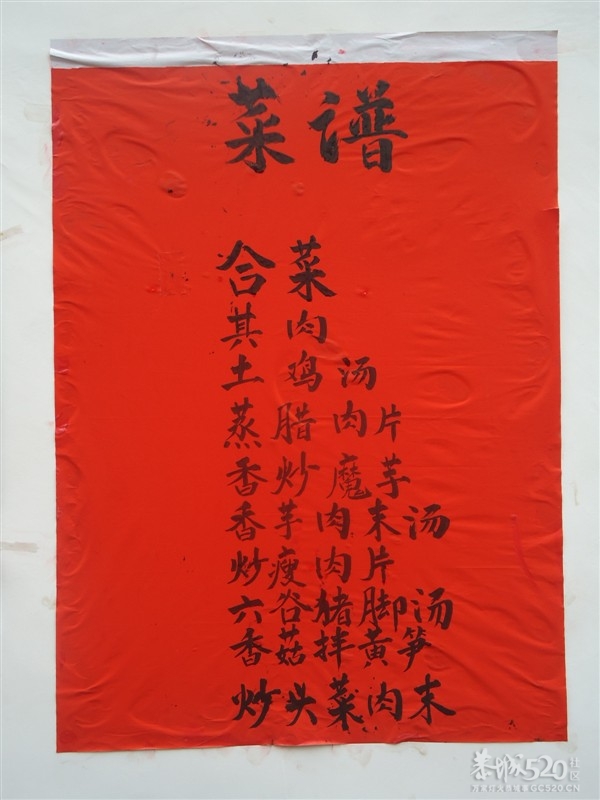 菜谱
合菜
其肉
土鸡汤
蒸腊肉片
香炒魔芋
香芋肉末汤
炒瘦肉片
六谷猪脚汤
香菇拌黄笋
炒头菜肉末
恭城520社区
GC520.CN